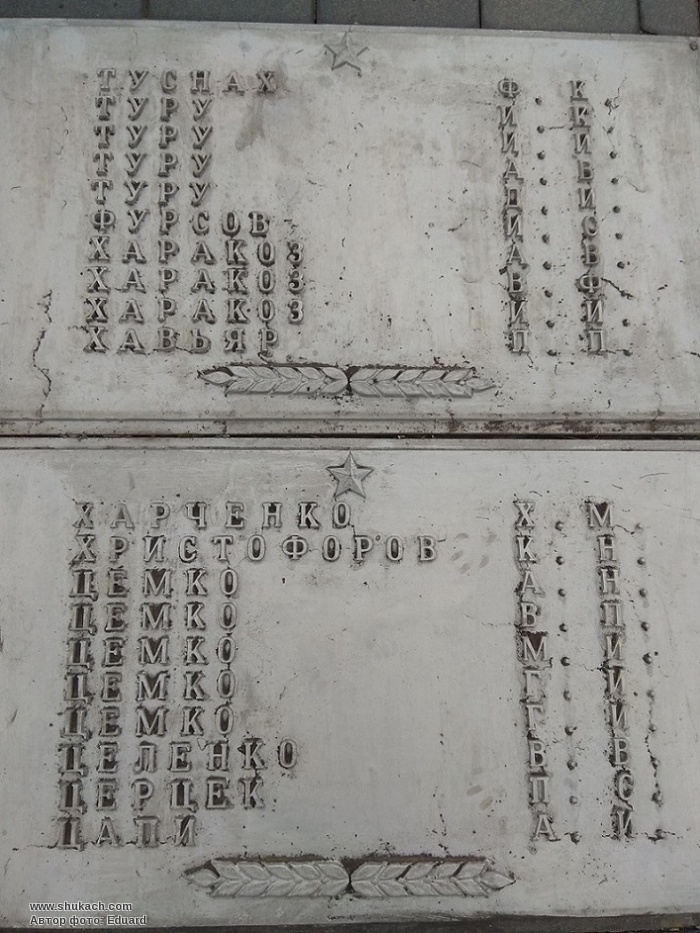 ТУСНАХ Ф. К.
ТУРУ И. К.
ТУРУ И. И.
ТУРУ А. В.
ТУРУ И.
ФУРСОВ И. С.
ХАРАКОЗ А. В.
ХАРАКОЗ В. Ф.
ХАРАКОЗ И. И.
ХАВЬЯР П. П.
ХАРЧЕНКО Х. М.
ХРИСТОФОРОВ К. Н.
ЦЕМКО А. Н.
ЦЕМКО В. П.
ЦЕМКО М. И.
ЦЕМКО Г. И.
ЦЕМКО Г. И.
ЦЕЛЕНКО В. В.
ЦЕРЦЕК П. С.
ЦАПИ А. И.
www.shukach.com
Автор фото: Eduard